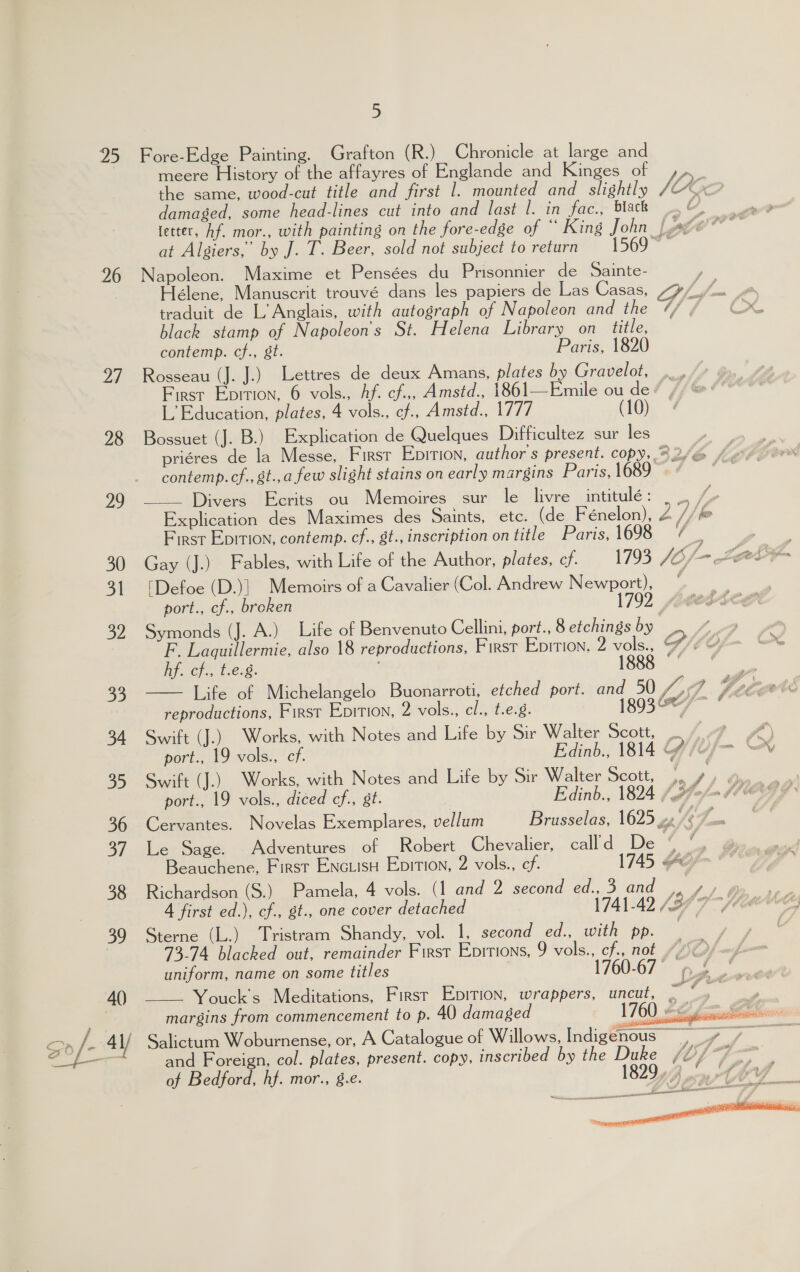 5
25 Fore-Edge Painting. Grafton (R.) Chronicle at large and
meere History of the affayres of Englande and Kinges of
the same, wood-cut title and first l. mounted and slightly
damaged, some head-lines cut into and last l. in fac., black
letter, hf. mor., with painting on the fore-edge of “King John
at Algiers,” by J. T. Beer, sold not subject to return 1569
26 Napoleon. Maxime et Pensées du Prisonnier de Sainte-
Hélene, Manuscrit trouvé dans les papiers de Las Casas,
traduit de L'Anglais, with autograph of Napoleon and the
black stamp of Napoleon's St. Helena Library on title,
contemp. cf., gt. Paris, 1820
27 Rosseau (J. J.) Lettres de deux Amans, plates by Gravelot,
First Edition, 6 vols., hf. cf.,, Amstd., 1861—Emile ou de
L'Education, plates, 4 vols., cf., Amstd., 1777 (10)
28 Bossuet (J. B.) Explication de Quelques Difficultez sur les
priéres de la Messe, First Edition, author's present. copy, 32/6
contemp. cf., gt., a few slight stains on early margins Paris, 1689
29 —— Divers Ecrits ou Memoires sur le livre intitulé:
Explication des Maximes des Saints, etc. (de Fénelon),
First Edition, contemp. cf., gt., inscription on title Paris, 1698
30 Gay (J.) Fables, with Life of the Author, plates, cf. 1793
31 [Defoe (D.)] Memoirs of a Cavalier (Col. Andrew Newport),
port., cf., broken 1792
32 Symonds (J. A.) Life of Benvenuto Cellini, port., 8 etchings by
F. Laquillermie, also 18 reproductions, First Edition, 2 vols.,
hf. cf., t.e.g. 1888
33 —— Life of Michelangelo Buonarroti, etched port. and 50
reproductions, First Edition, 2 vols., cl., t.e.g. 1893
34 Swift (J.) Works, with Notes and Life by Sir Walter Scott,
port., 19 vols., cf. Edinb., 1814
35 Swift (J.) Works, with Notes and Life by Sir Walter Scott,
port., 19 vols., diced cf., gt. Edinb., 1824
36 Cervantes. Novelas Exemplares, vellum Brusselas, 1625
37 Le Sage. Adventures of Robert Chevalier, call'd De
Beauchene, First English Edition, 2 vols., cf. 1745
38 Richardson (S.) Pamela, 4 vols. (1 and 2 second ed., 3 and
4 first ed.), cf., gt., one cover detached 1741-42
39 Sterne (L.) Tristram Shandy, vol. 1, second ed., with pp.
73-74 blacked out, remainder First Editions, 9 vols., cf., not
uniform, name on some titles 1760-67
40 —— Youck's Meditations, First Edition, wrappers, uncut,
margins from commencement to p. 40 damaged 1760
41 Salictum Woburnense, or, A Catalogue of Willows, Indigenous
and Foreign, col. plates, present. copy, inscribed by the Duke
of Bedford, hf. mor., g.e. 1829